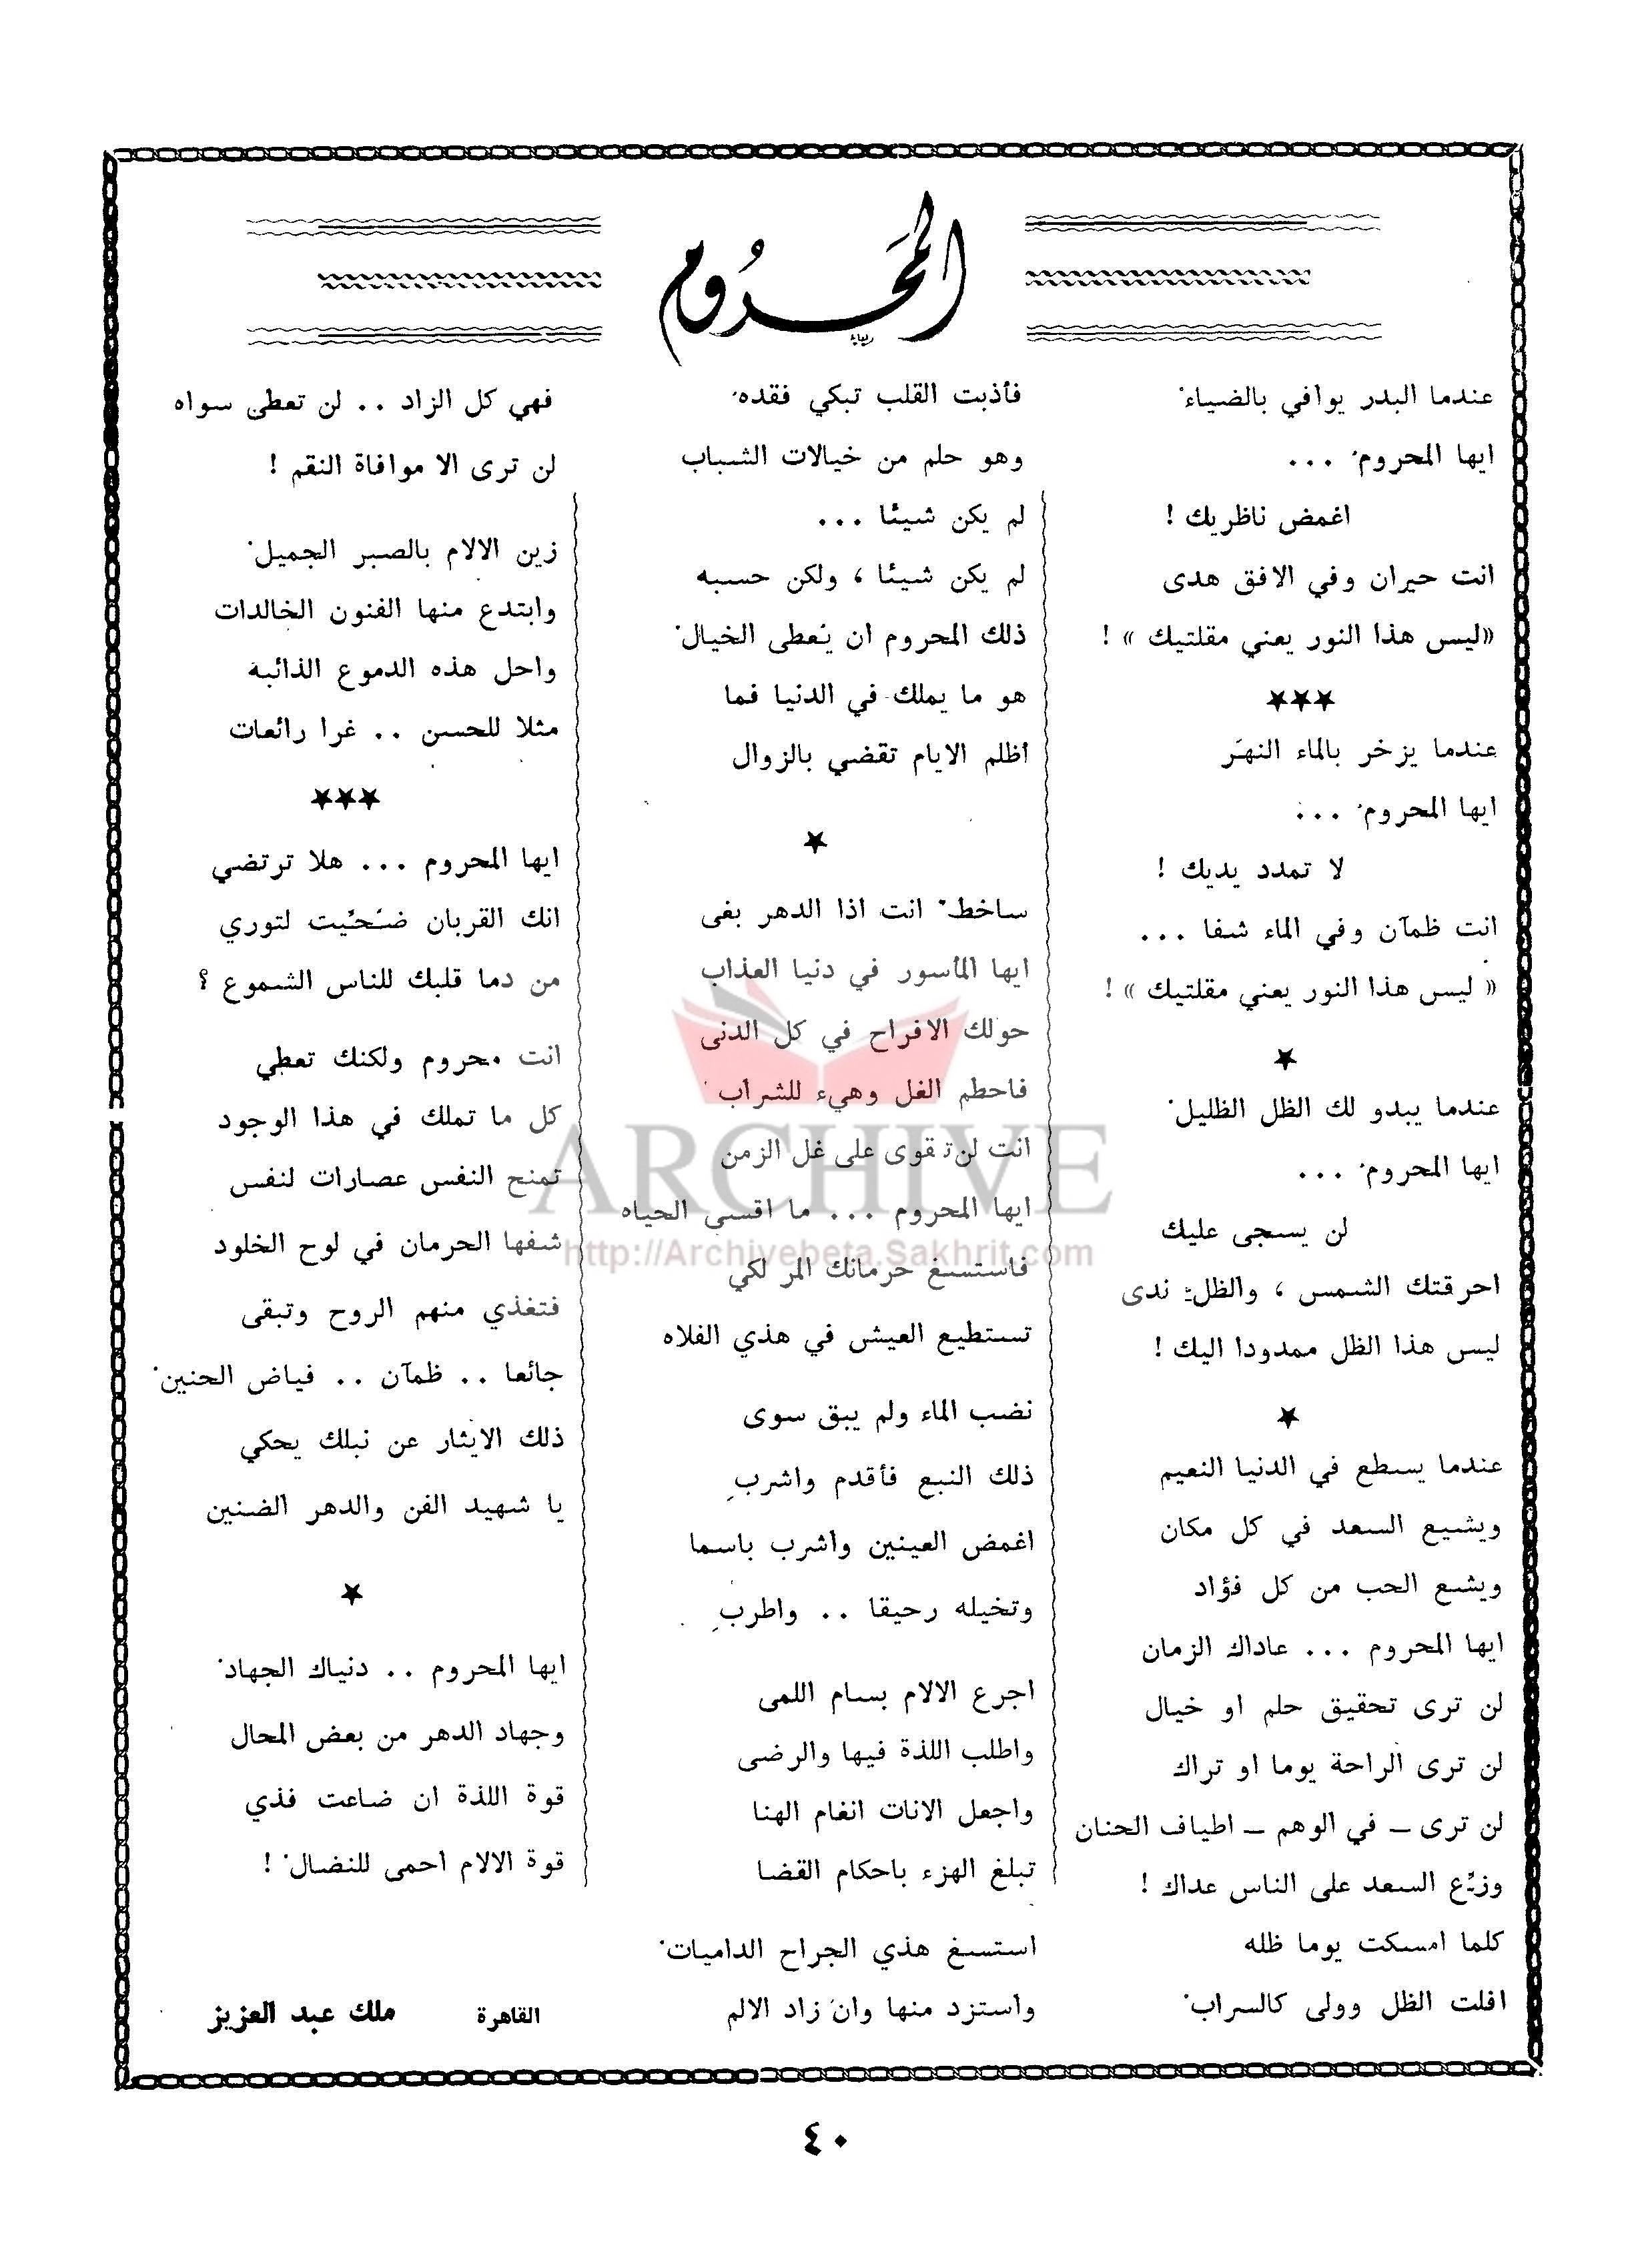 المحروم
عندما البدر يوافي بالضياء
ايها المحروم ...
اغمض ناظريك !
انت حيران وفي الافق هدى
«ليس هذا النور يعني مقلتيك » !
★★★
عندما يزخر بالماء النهر
ايها المحروم ...
لا تمدد يديك !
انت ظمآن وفي الماء شفا ...
« ليس هذا النور يعني مقلتيك » !
★
عندما يبدو لك الظل الظليل
ايها المحروم ...
لن يسجى عليك
احرقتك الشمس ، والظل ندى
ليس هذا الظل ممدودا اليك !
★
عندما يسطع في الدنيا النعيم
ويشيع السعد في كل مكان
ويشع الحب من كل فؤاد
ايها المحروم ... عاداك الزمان
لن ترى تحقيق حلم او خيال
لن ترى الراحة يوما او تراك
لن ترى ــ في الوهم ــ اطياف الحنان
وزّع السعد على الناس عداك !
كلما امسكت يوما ظله
افلت الظل وولى كالسراب
فأذبت القلب تبكي فقده
وهو حلم من خيالات الشباب
لم يكن شيئا ...
لم يكن شيئا ، ولكن حسبه
ذلك المحروم ان يُعطى الخيال
هو ما يملك في الدنيا فما
اظلم الايام تقضي بالزوال
★
ساخط انت اذا الدهر بغى
ايها المأسور في دنيا العذاب
حولك الافراح في كل الدنى
فاحطم الغل وهيء للشراب
انت لن تقوى على غل الزمن
ايها المحروم ... ما اقسى الحياه
فاستسغ حرمانك المر لكي
تستطيع العيش في هذي الفلاه
نضب الماء ولم يبق سوى
ذلك النبع فأقدم واشربِ
اغمض العينين واشرب باسما
وتخيله رحيقا .. واطربِ
اجرع الالام بسام اللمى
واطلب اللذة فيها والرضى
واجعل الانات انغام الهنا
تبلغ الهزء باحكام القضا
استسغ هذي الجراح الداميات
واستزد منها وان زاد الالم
فهي كل الزاد .. لن تعطى سواه
لن ترى الا موافاة النقم !
زين الالام بالصبر الجميل
وابتدع منها الفنون الخالدات
واحل هذه الدموع الذائبة
مثلا للحسن .. غرا رائعات
★★★
ايها المحروم ... هلا ترتضي
انك القربان ضُحّيت لتوري
من دما قلبك للناس الشموع ؟
انت محروم ولكنك تعطي
كل ما تملك في هذا الوجود
تمنح النفس عصارات لنفس
شفها الحرمان في لوح الخلود
فتغذي منهم الروح وتبقى
جائعا .. ظمآن .. فياض الحنين
ذلك الايثار عن نبلك يحكي
يا شهيد الفن والدهر الضنين
★
ايها المحروم .. دنياك الجهاد
وجهاد الدهر من بعض المحال
قوة اللذة ان ضاعت فذي
قوة الالام احمى للنضال !
القاهرة ملك عبد العزيز
٤٠
ARCHIVE
http://Archivebeta.Sakhrit.com